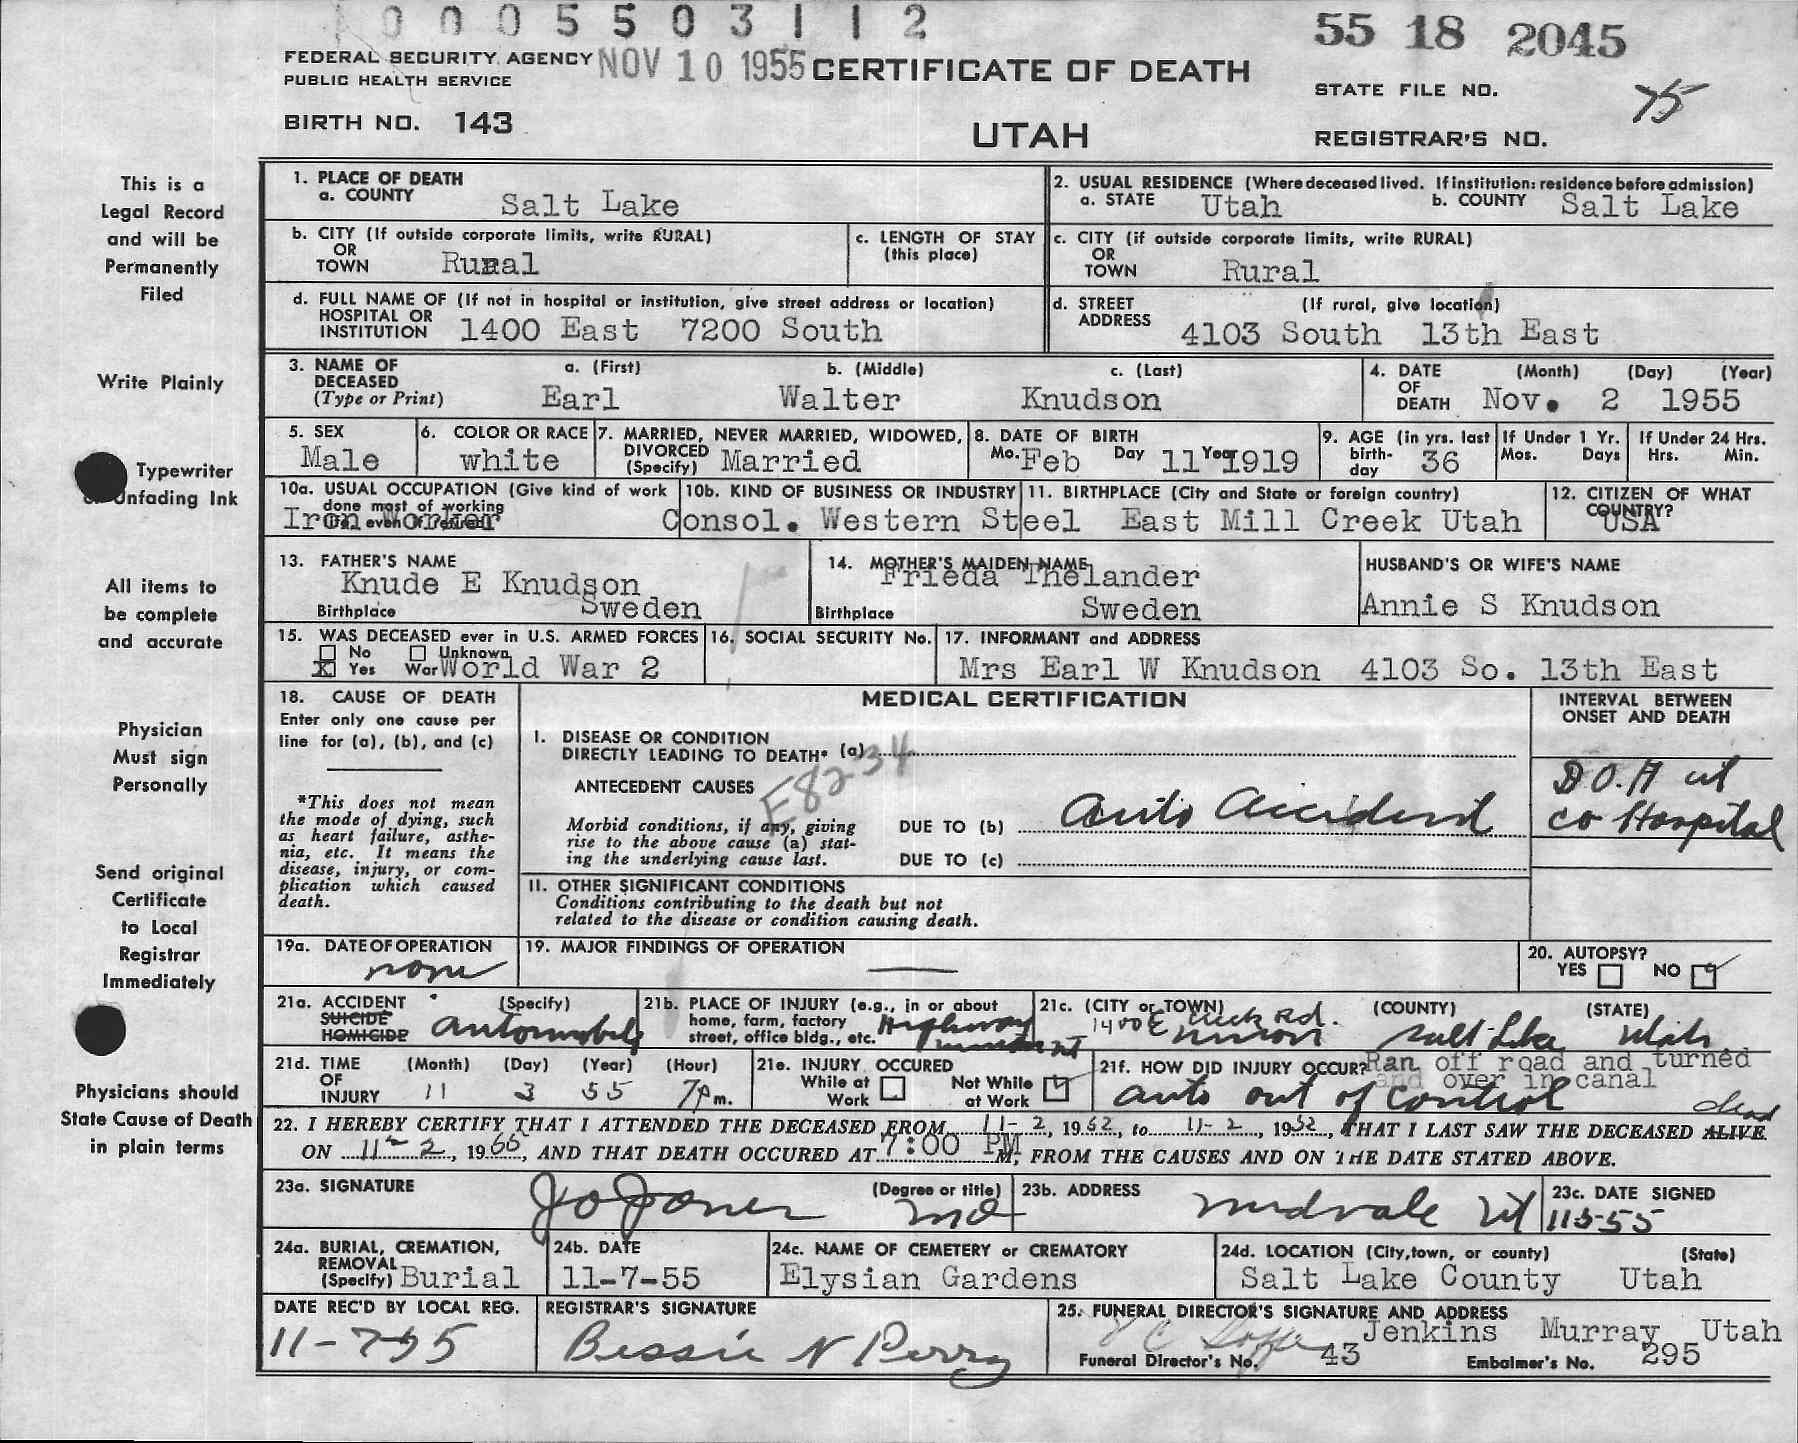 0005503112
55 18 2045
FEDERAL SECURITY AGENCY NOV 10 1955 CERTIFICATE OF DEATH
PUBLIC HEALTH SERVICE
STATE FILE NO.
75
BIRTH NO. 143
UTAH
REGISTRAR'S NO.
This is a
Legal Record
and will be
Permanently
Filed
Write Plainly
Typewriter
or Unfading Ink
All items to
be complete
and accurate
Physician
Must sign
Personally
Send original
Certificate
to Local
Registrar
Immediately
Physicians should
State Cause of Death
in plain terms
1. PLACE OF DEATH
a. COUNTY Salt Lake
2. USUAL RESIDENCE (Where deceased lived. If institution: residence before admission)
a. STATE Utah b. COUNTY Salt Lake
b. CITY (If outside corporate limits, write RURAL)
OR
TOWN Rural
c. LENGTH OF STAY
(this place)
c. CITY (if outside corporate limits, write RURAL)
OR
TOWN Rural
d. FULL NAME OF (If not in hospital or institution, give street address or location)
HOSPITAL OR
INSTITUTION 1400 East 7200 South
d. STREET (If rural, give location)
ADDRESS 4103 South 13th East
3. NAME OF a. (First) b. (Middle) c. (Last)
DECEASED
(Type or Print) Earl Walter Knudson
4. DATE (Month) (Day) (Year)
OF
DEATH Nov. 2 1955
5. SEX
Male
6. COLOR OR RACE
white
7. MARRIED, NEVER MARRIED, WIDOWED,
DIVORCED
(Specify) Married
8. DATE OF BIRTH
Mo. Feb Day 11 Year 1919
9. AGE (in yrs. last
birth-
day 36
If Under 1 Yr.
Mos. Days
If Under 24 Hrs.
Hrs. Min.
10a. USUAL OCCUPATION (Give kind of work
done most of working
life, even if retired)
Iron Worker
10b. KIND OF BUSINESS OR INDUSTRY
Consol. Western Steel
11. BIRTHPLACE (City and State or foreign country)
East Mill Creek Utah
12. CITIZEN OF WHAT
COUNTRY?
USA
13. FATHER'S NAME
Knude E Knudson
Birthplace Sweden
14. MOTHER'S MAIDEN NAME
Frieda Thelander
Birthplace Sweden
HUSBAND'S OR WIFE'S NAME
Annie S Knudson
15. WAS DECEASED ever in U.S. ARMED FORCES
No Unknown
X Yes War World War 2
16. SOCIAL SECURITY No.
17. INFORMANT and ADDRESS
Mrs Earl W Knudson 4103 So. 13th East
18. CAUSE OF DEATH
Enter only one cause per
line for (a), (b), and (c)
*This does not mean
the mode of dying, such
as heart failure, asthe-
nia, etc. It means the
disease, injury, or com-
plication which caused
death.
MEDICAL CERTIFICATION
I. DISEASE OR CONDITION
DIRECTLY LEADING TO DEATH* (a)
E823 4
ANTECEDENT CAUSES
Morbid conditions, if any, giving
rise to the above cause (a) stat-
ing the underlying cause last.
DUE TO (b) Auto Accident
DUE TO (c)
II. OTHER SIGNIFICANT CONDITIONS
Conditions contributing to the death but not
related to the disease or condition causing death.
INTERVAL BETWEEN
ONSET AND DEATH
D.O.A at
Co Hospital
19a. DATE OF OPERATION
none
19. MAJOR FINDINGS OF OPERATION
20. AUTOPSY?
YES NO
21a. ACCIDENT (Specify)
SUICIDE
HOMICIDE
automobile
21b. PLACE OF INJURY (e.g., in or about
home, farm, factory
street, office bldg., etc. Highway
21c. (CITY or TOWN) (COUNTY) (STATE)
1400 E Creek Rd.
Union Salt Lake Utah
21d. TIME (Month) (Day) (Year) (Hour)
OF
INJURY 11 3 55 7P m.
21e. INJURY OCCURED
While at Work
Not While at Work
21f. HOW DID INJURY OCCUR? Ran off road and turned
and over in canal
auto out of control
dead
22. I HEREBY CERTIFY THAT I ATTENDED THE DECEASED FROM 11-2, 1952, to 11-2, 1952, THAT I LAST SAW THE DECEASED ALIVE
ON 11-2, 1955, AND THAT DEATH OCCURED AT 7:00 PM M, FROM THE CAUSES AND ON THE DATE STATED ABOVE.
23a. SIGNATURE (Degree or title)
Jo Jones MD
23b. ADDRESS
Midvale Ut
23c. DATE SIGNED
11-5-55
24a. BURIAL, CREMATION,
REMOVAL
(Specify) Burial
24b. DATE
11-7-55
24c. NAME OF CEMETERY or CREMATORY
Elysian Gardens
24d. LOCATION (City, town, or county) (State)
Salt Lake County Utah
DATE REC'D BY LOCAL REG.
11-7-55
REGISTRAR'S SIGNATURE
Bessie N Perry
25. FUNERAL DIRECTOR'S SIGNATURE AND ADDRESS
Jenkins Murray Utah
Funeral Director's No. 43 Embalmer's No. 295